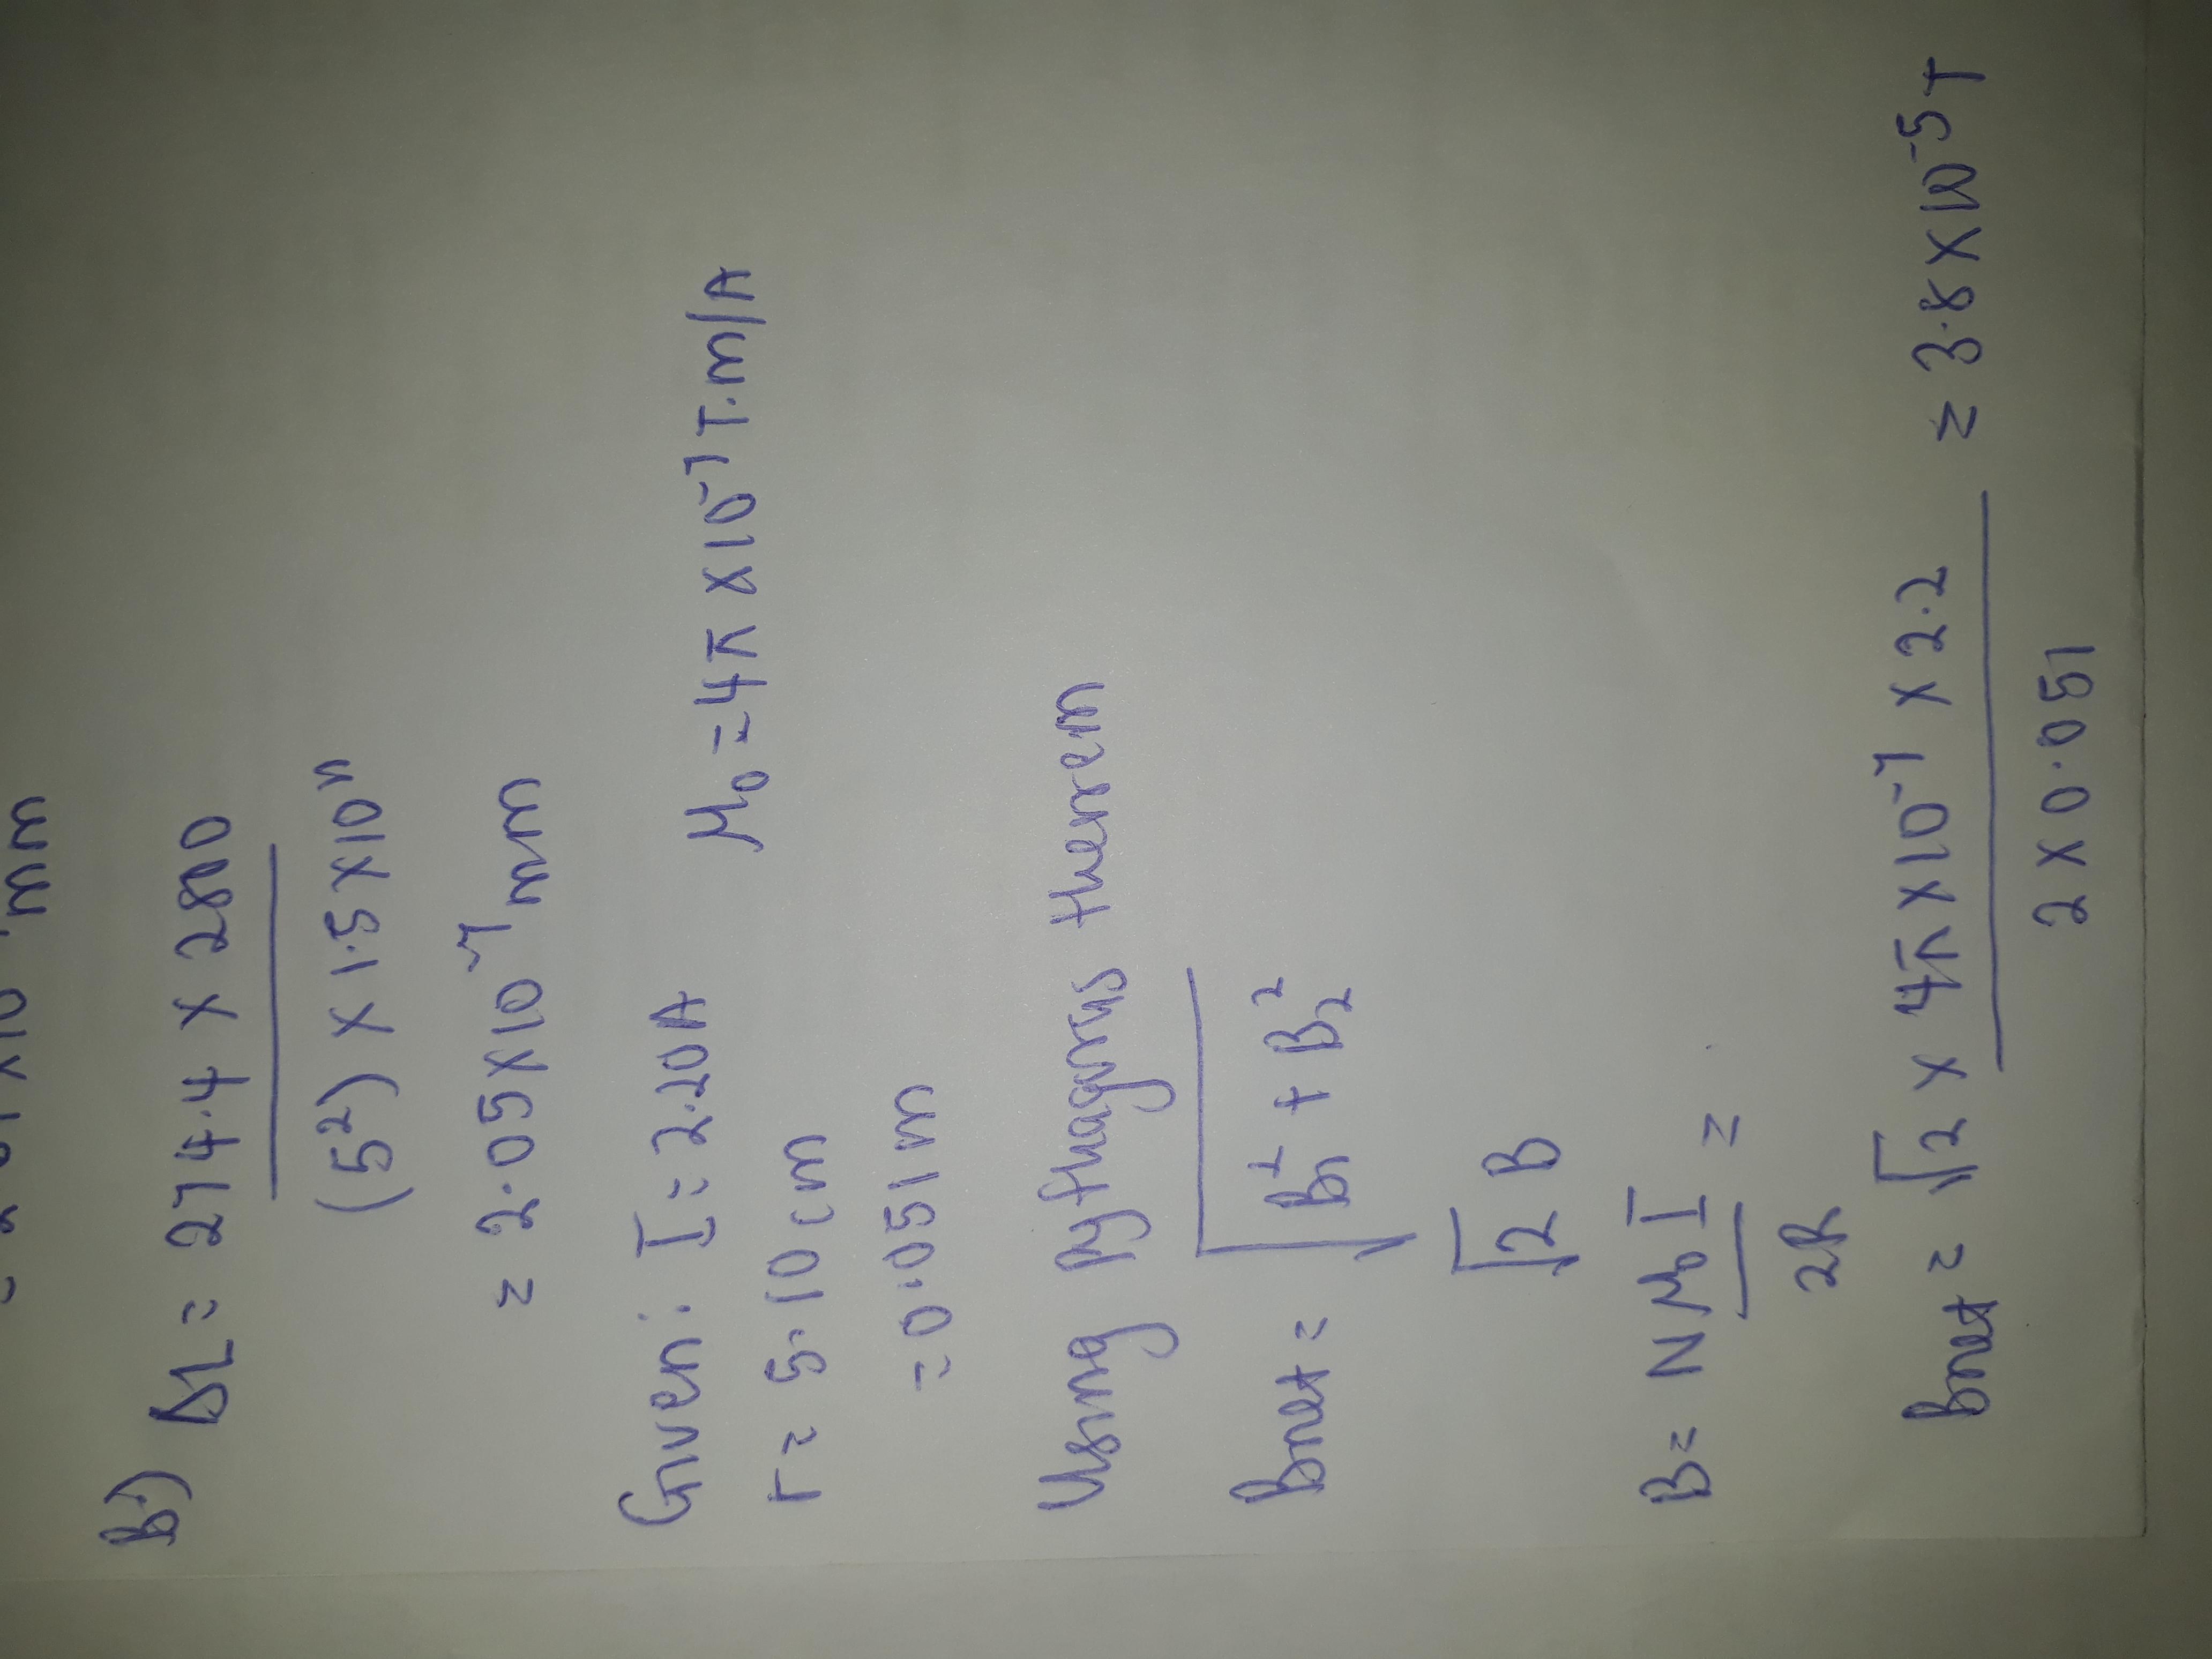 mm
b) ΔL = 274.4 × 2800
(5²) × 1.5 × 10¹¹
= 2.05 × 10⁻⁷ mm
Given: I = 2.20A μ₀ = 4π × 10⁻⁷ T.m/A
r = 5.10 cm
= 0.051 m
Using pythagoras theorem
Bnet = √B₁² + B₂²
√2 B
B = Nμ₀I =
2R
Bnet = √2 × 4π × 10⁻⁷ × 2.2 = 3.8 × 10⁻⁵ T
2 × 0.051